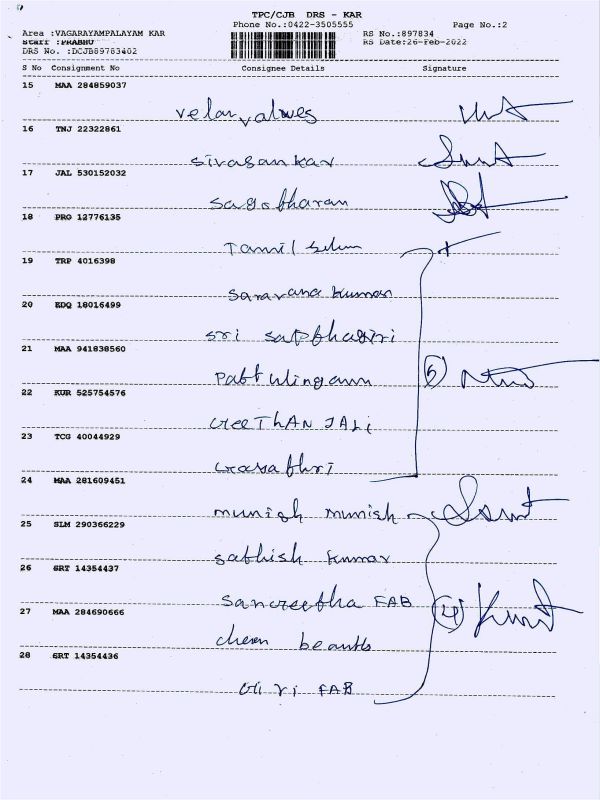 TPC/CJB DRS - KAR
Phone No.:0422-3505555 Page No.:2
Area :VAGARAYAMPALAYAM KAR RS No.:897834
Staff :PRABHU RS Date:26-Feb-2022
DRS No. :DCJB89783402
S No Consignment No Consignee Details Signature
15 MAA 284859037
velan valves
16 TNJ 22322861
sivasankar
17 JAL 530152032
sagobharan
18 PRG 12776135
Tamil
19 TRP 4016398
saravana kumar
20 KDQ 18016499
sri
21 MAA 941838560
5
22 KUR 525754576
GeeTHAN JALi
23 TCG 40044929
24 MAA 281609451
munish munish
25 SLM 290366229
sathish kumar
26 SRT 14354437
FAB 4
27 MAA 284690666
28 SRT 14354436
Giri FAB